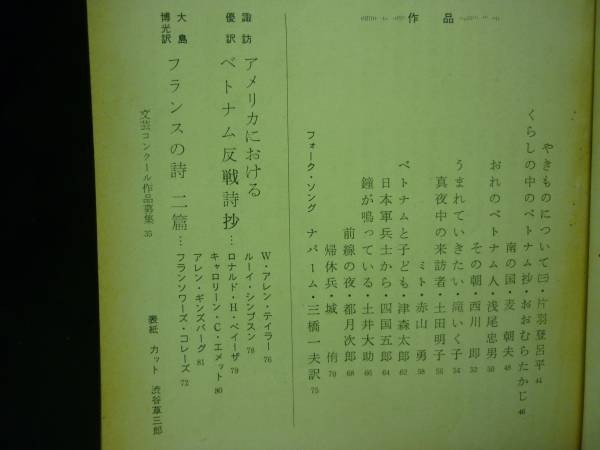 作品
やきものについて㈢・片羽登呂平 44
くらしの中のベトナム抄・おおむらたかじ 46
南の国・麦 朝夫 48
おれのベトナム人・浅尾忠男 50
その朝・西川 即 52
うまれていきたい・滝いく子 54
真夜中の来訪者・土田明子 56
ミト・赤山 勇 58
ベトナムと子ども・津森太郎 62
日本軍兵士から・四国五郎 64
鐘が鳴っている・土井大助 66
前線の夜・都月次郎 68
帰休兵・城 侑 70
フォーク・ソング ナパーム・三橋一夫訳 75
諏訪 優訳 アメリカにおけるベトナム反戦詩抄…
W・アレン・テイラー 76
ルーイ・シンプスン 78
ロナルド・H・ベイーザ 79
キャロリーン・C・エメット 80
アレン・ギンズバーグ 81
大島 博光訳 フランスの詩 二篇…フランソワーズ・コレーズ 72
文芸コンクール作品募集 35
表紙 カット 渋谷草三郎